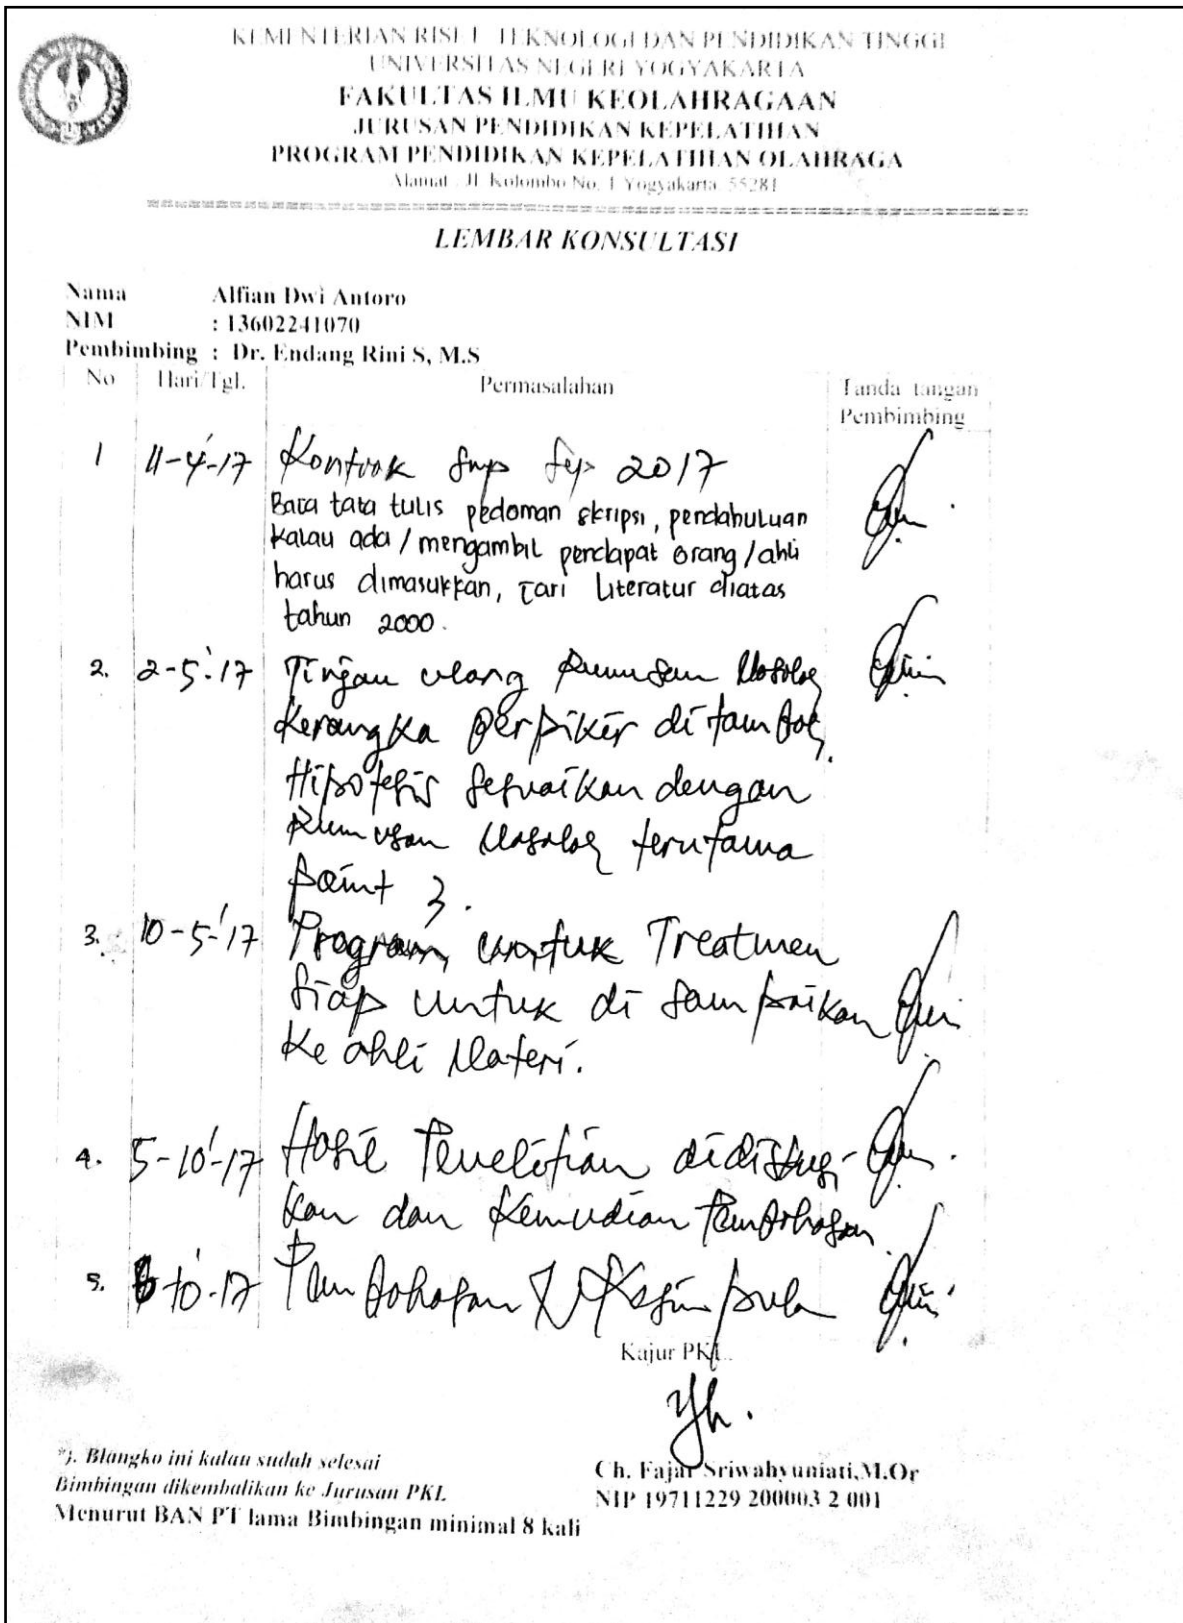 KEMENTERIAN RISET TEKNOLOGI DAN PENDIDIKAN TINGGI
UNIVERSITAS NEGERI YOGYAKARTA
FAKULTAS ILMU KEOLAHRAGAAN
JURUSAN PENDIDIKAN KEPELATIHAN
PROGRAM PENDIDIKAN KEPELATIHAN OLAHRAGA
Alamat : Jl. Kolombo No. 1 Yogyakarta 55281
LEMBAR KONSULTASI
Nama Alfian Dwi Antoro
NIM : 13602241070
Pembimbing : Dr. Endang Rini S, M.S
No Hari/Tgl. Permasalahan Tanda tangan
Pembimbing
1 11-4-'17 Kontrak 2017
Baca tata tulis pedoman skripsi, pendahuluan
kalau ada / mengambil pendapat orang / ahli
harus dimasukkan, cari literatur diatas
tahun 2000.
2. 2-5-'17 Tinjau ulang Rumusan Masalah
Kerangka berpikir ditambah,
Hipotesis sesuaikan dengan
Rumusan Masalah terutama
point 3.
3. 10-5-'17 Program untuk Treatmen
siap untuk di sampaikan
ke ahli Materi.
4. 5-10-'17 Hasil Penelitian didiskusi-
kan dan kemudian Pembahasan
5. 10-17 Pembahasan & Kesimpula
Kajur PKL.
Ch. Fajar Sriwahyuniati,M.Or
NIP 19711229 200003 2 001
*). Blangko ini kalau sudah selesai
Bimbingan dikembalikan ke Jurusan PKL
Menurut BAN PT lama Bimbingan minimal 8 kali